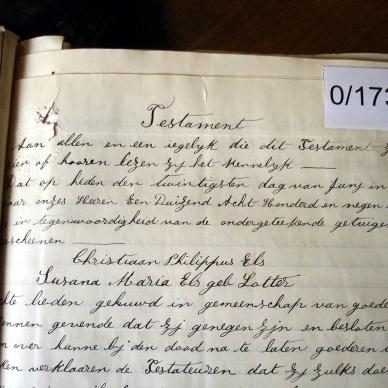 0/173
Testament
Aan allen en een iegelyk die dit Testament
zien of hooren lezen zij het kennelyk
Dat op heden den twintigsten dag van Juny in
jaar onzes Heeren Een Duizend Acht Honderd en negen
in tegenwoordigheid van de ondergeteekende getuigen
Christiaan Philippus Els
Susana Maria Els geb Lotter
lieden gehuwd in gemeenschap van goede
gevende dat zij genegen zijn en besloten
over hunne bij den dood na te laten goederen
verklaaren de Testateuren dat zij zulks doe